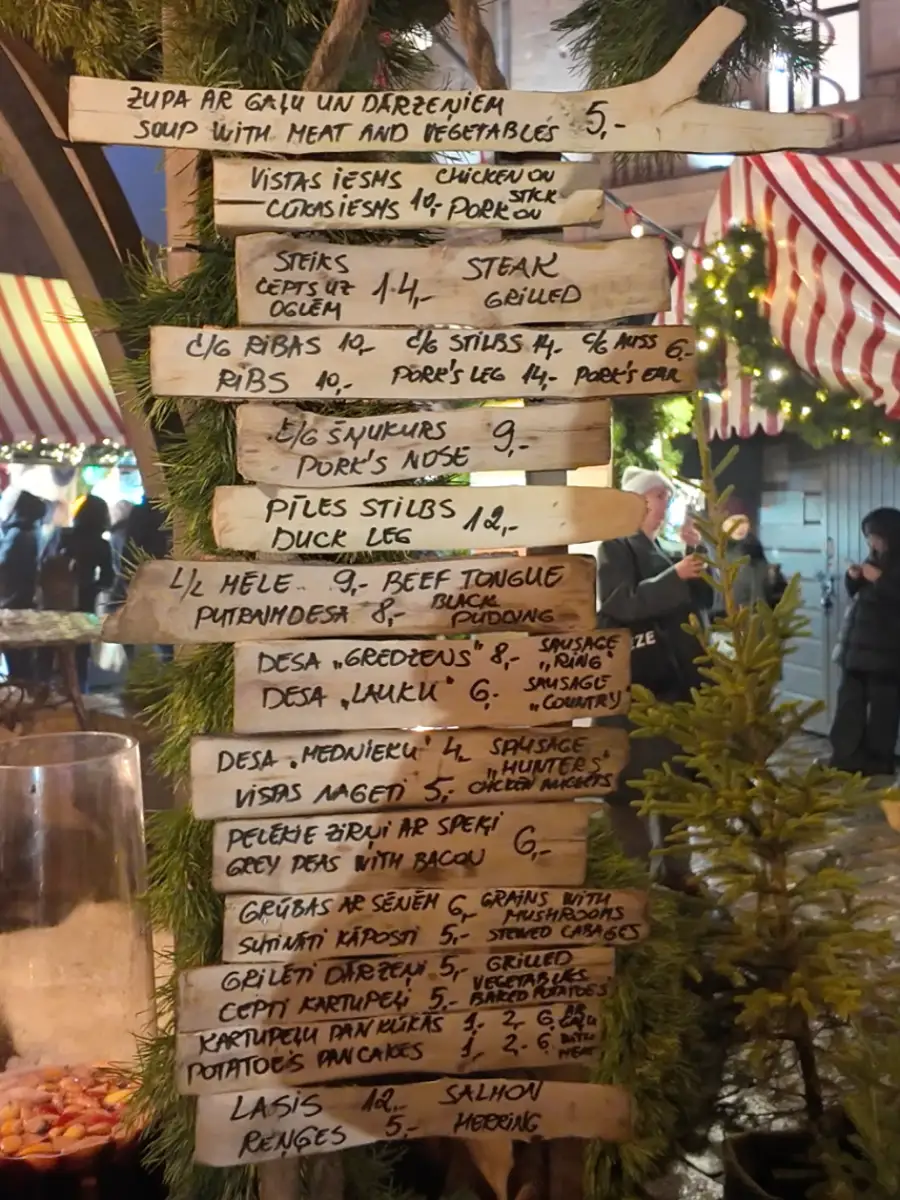 ZUPA AR GAĻU UN DĀRZEŅIEM 5,-
SOUP WITH MEAT AND VEGETABLES
VISTAS IESMS CHICKEN ON STICK
CŪKAS IESMS 10,- PORK ON
STEIKS STEAK
CEPTS UZ 14,- GRILLED
OGLĒM
C/G RIBAS 10,- C/G STILBS 14,- C/G AUSS 6,-
RIBS 10,- PORK'S LEG 14,- PORK'S EAR
C/G ŠŅUKURS 9,-
PORK'S NOSE
PĪLES STILBS 12,-
DUCK LEG
L/L MĒLE 9,- BEEF TONGUE
PUTRAIMDESA 8,- BLACK PUDDING
DESA „GREDZENS" 8,- SAUSAGE „RING"
DESA „LAUKU" 6,- SAUSAGE „COUNTRY"
DESA „MEDNIEKU" 4,- SAUSAGE „HUNTERS"
VISTAS NAGETI 5,- CHICKEN NUGGETS
PELĒKIE ZIRŅI AR SPEĶI 6,-
GREY PEAS WITH BACON
GRŪBAS AR SĒNĒM 6,- GRAINS WITH MUSHROOMS
SUTINĀTI KĀPOSTI 5,- STEWED CABAGES
GRILĒTI DĀRZEŅI 5,- GRILLED VEGETABLES
CEPTI KARTUPEĻI 5,- BAKED POTATOES
KARTUPEĻU PANKŪKAS 1,- 2,- 6,- AR GAĻU
POTATOE'S PANCAKES 1,- 2,- 6 WITH MEAT
LASIS 12,- SALMON
REŅĢES 5,- HERRING